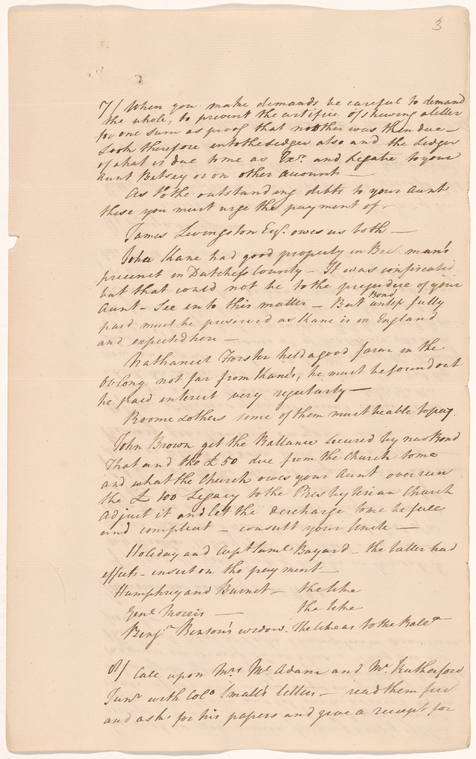 3
7/ When you make demands be careful to demand
the whole, to prevent the artifice of shewing a letter
for one sum as proof that no other was then due -
Look therefore into the Ledger also and the Ledger
of what is due to me as Exr. and Legatee to your
Aunt Betsey or on other accounts -
As to the outstanding debts to your Aunt
these you must urge the payment of -
James Livingston Esq. owes us both -
John Kane had good property in Beekman's
precinct in Dutchess County - It was confiscated
but that could not be to the prejudice of your
Aunt - See into this matter - But Bond unless fully
paid must be preserved as Kane is in England
and expected here -
Nathaniel Forster held a good farm in the
Oblong not far from Kane's, he must be found out
he paid interest very regularly -
Roome & others some of them must be able to pay.
John Brown get the Ballance secured by new Bond
That and the £50 due from the Church to me
and what the Church owes your Aunt over
the £100 Legacy to the Presbyterian Church
Adjust it and let the discharge to me be full
and compleat - consult your Uncle -
Holiday and Capt Saml. Bayard - the latter had
effects - insist on the payment -
Humphrey and Burnet - the like
Genl. Morris - the like
Benjn. Benson's widow. the like as to the Balce
8/ Call upon Mrs. McAdam and Mr. Rutherford
Junr. with Colo. Small's letters - read them first
and ask for his papers and give a receipt for